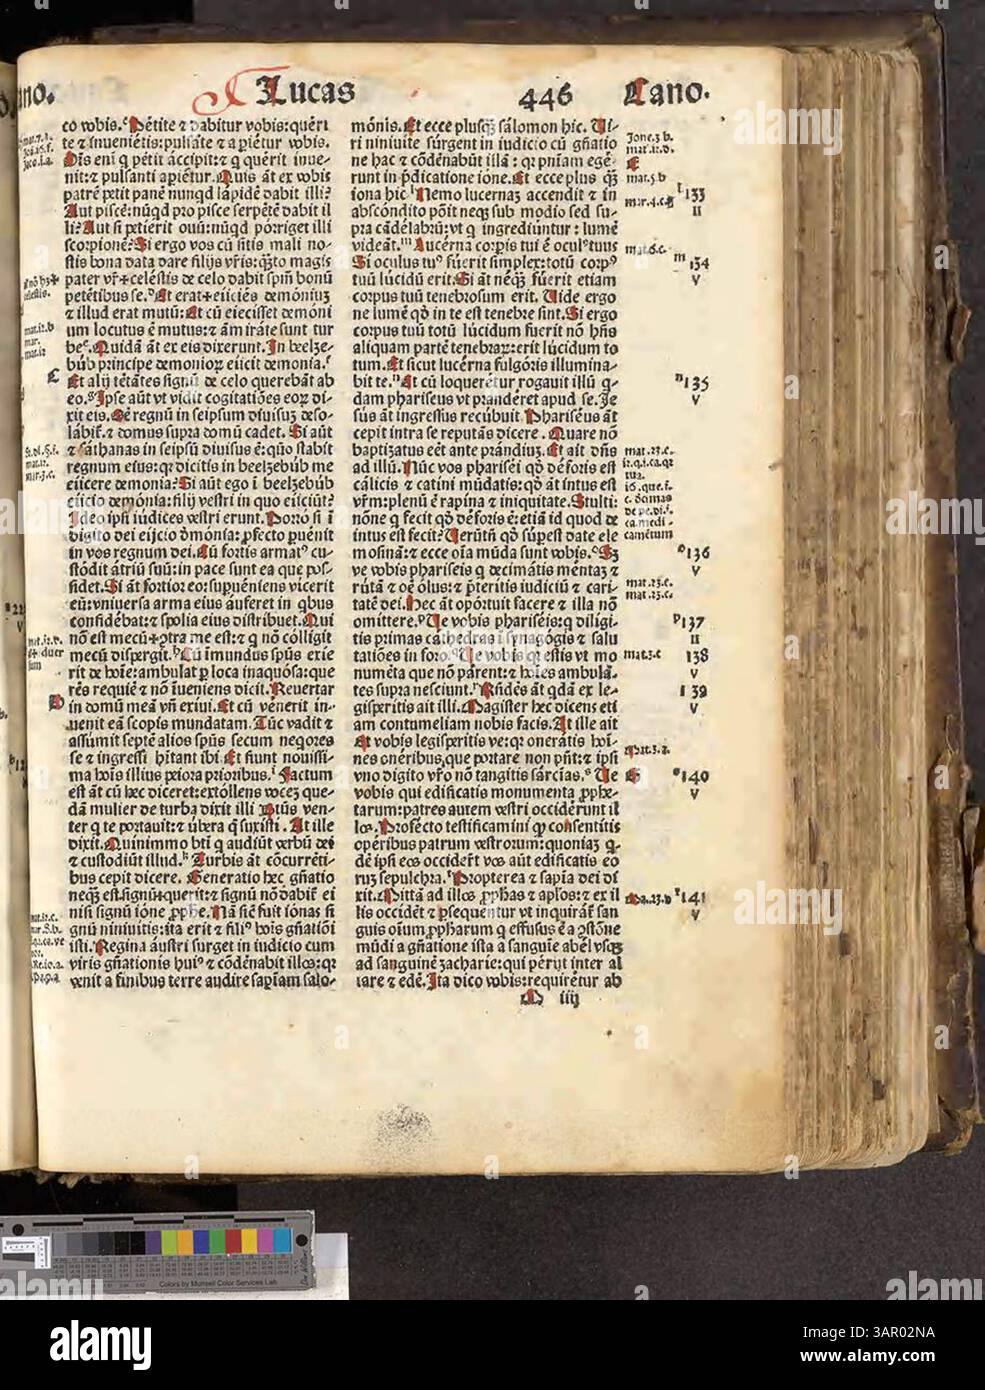 ano.
Lucas
446
Cano.
co vobis. Petite ⁊ dabitur vobis: querí
te ⁊ inuenietis: pulsate ⁊ apíetur vobis.
Oīs enī q petit accipit: ⁊ q querit inue-
nit: ⁊ pulsanti apíetur. Quis āt ex vobis
patrē petit panē nunqd lápidē dabit illi?
Aut piscē: nūqd pro pisce serpētē dabit il
li? Aut si petierit ouū: nūqd pórriget illi
scorpionē? Si ergo vos cū sitis mali no-
stis bona data dare filijs vrīs: q̄to magis
pater vr̄ + celéstis de celo dabit spm̄ bonū
petētibus se. Et erat + eijciēs demóniuz
⁊ illud erat mutū: ⁊ cū eiecisset demóni
um locutus ē mutus: ⁊ ām iráte sunt tur
be. Quidā āt ex eis dixerunt. In beelze-
búb príncipe demonioꝝ eijcit demonia.
Et alij tētátes signū de celo querebāt ab
eo. Ipse aūt vt vidit cogitatiões eoꝝ di-
xit eis. Oē regnū in seipsum diuisuz deso-
labit̄: ⁊ domus supra domū cadet. Si aūt
⁊ sáthanas in seipsū diuisus ē: quō stabit
regnum eius: qꝛ dicitis in beelzebúb me
eijcere demonia? Si aūt ego ī beelzebúb
eijcio demónia: filij vestri in quo eijciūt?
Ideo ipsi iúdices vestri erunt. Porró si ī
dígito dei eijcio dēmónia: ꝓfecto puénit
in vos regnum dei. Cū fortis armatꝰ cu-
stódit átriū suū: in pace sunt ea que pos-
sidet. Si āt fortior eo: supuéniens vicerit
eū: vniuersa arma eius áuferet in qbus
confidēbat: ⁊ spolia eius distribuet. Qui
nō est mecū + ꝯtra me est: ⁊ q nō cólligit
mecū dispergit. Cū īmundus spūs exíe
rit de hoīe: ambulat p loca inaquósa: que
rēs requiē ⁊ nō īueniens dicit. Reuertar
in domū meā vn̄ exiui. Et cū venerit in-
uenit eā scopis mundatam. Tūc vadit ⁊
assumit septē alios spūs secum neqores
se ⁊ ingressi hītant ibi. Et fiunt nouissi-
ma hoīs illius peiora prioribus. Factum
est āt cū hec diceret: extóllens vocez que-
dā mulier de turba dixit illi Btūs ven-
ter q te portauit: ⁊ úbera q̄ suxisti. At ille
dixit. Quinimmo bti q audiūt verbū dei
⁊ custodiūt illud. Turbis āt cōcurréti-
bus cepit dicere. Generatio hec gn̄atio
neq̄z est. signū + querit: ⁊ signū nō dabit̄ ei
nisi signū ióne ꝓphe. Nā sic̄ fuit ionas si
gnū niniuitis: ita erit ⁊ filiꝰ hoīs gn̄atiōi
isti. Regina áustri surget in iudicio cum
viris gn̄ationis huiꝰ ⁊ cōdēnabit illos: qꝛ
venit a finibus terre audire sapīam salo-
mónis. Et ecce plusq̄ sálomon hic. Ui-
ri niniuite súrgent in iudicio cū gn̄atio
ne hac ⁊ cōdēnabūt illā: qꝛ pniam egé-
runt in p̄dicatione ione. Et ecce plus q̄
iona hic. Nemo lucernaz accendit ⁊ in
abscóndito pōit neqꝫ sub modio sed su-
pra cādélabrū: vt q ingrediūntur: lumē
vídeāt. Lucérna corpis tui ē oculꝰ tuus
Si oculus tuꝰ fúerit simplex: totū corpꝰ
tuū lúcidū erit. Si āt néq̄ fúerit etiam
corpus tuū tenebrosum erit. Uide ergo
ne lumē qd̄ in te est tenebre sint. Si ergo
corpus tuū totū lúcidum fuerit nō hn̄s
aliquam partē tenebraꝝ: erit lúcidum to
tum. Et sicut lucérna fulgóris illumina-
bit te. Et cū loquerétur rogauit illū q-
dam phariseus vt pránderet apud se. Je
sus āt ingressus recúbuit. Phariséus āt
cepit intra se reputās dicere. Quare nō
baptizatus eēt ante prándiuz. Et ait dn̄s
ad illū. Nūc vos pharisei qd̄ deforis est
cálicis ⁊ catini mūdatis: qd̄ āt intus est
vrm̄: plenū ē rapina ⁊ iniquitate. Stulti:
nōne q fecit qd̄ defóris ē: etiā id quod de
intus est fecit? Uerūtn̄ qd̄ supest date ele
mosinā: ⁊ ecce oīa mūda sunt vobis. Sz
ve vobis phariseis q decimátis mentaz ⁊
rútā ⁊ oē ólus: ⁊ p̄teritis iudiciū ⁊ cari-
tatē dei. Hec āt opórtuit facere ⁊ illa nō
omittere. Ue vobis phariséis: q diligi-
tis primas cathedras ī synagógis ⁊ salu
tatiões in foro. Ue vobis qꝛ estis vt mo
numēta que nō parent: ⁊ hoīes ambulā-
tes supra nesciunt. Rn̄dēs āt qdā ex le-
gisperitis ait illi. Magister hec dicens eti
am contumeliam nobis facis. At ille ait
Et vobis legisperitis ve: qꝛ onerátis hoī-
nes onéribus, que portare non pn̄t: ⁊ ipsi
vno dígito vr̄o nō tangitis sárcias. Ue
vobis qui edificatis monumenta ꝓphe-
tarum: patres autem vestri occidérunt il
los. Profécto testificamini ꝙ consentítis
opéribus patrum vestrorum: quoniaz q-
dē ipsi eos occiderūt vos aūt edificatis eo
ruz sepulchra. Propterea ⁊ sapia dei di
xit. Mittā ad illos ꝓphas ⁊ aplos: ⁊ ex il
lis occidēt ⁊ psequentur vt inquirát̄ san
guis oīum ꝓpharum q effusus ē a ꝯstōne
mūdi a gn̄atione ista a sanguīe abel vsqꝫ
ad sanguinē zacharie: qui périjt inter al
tare ⁊ edē. Ita dico vobis: requirétur ab
M iiij
133
II
134
V
135
V
136
V
137
II
138
V
139
V
140
V
141
V
Colors by Munsell Color Services Lab
alamy
Image ID: 3AR02NA
www.alamy.com